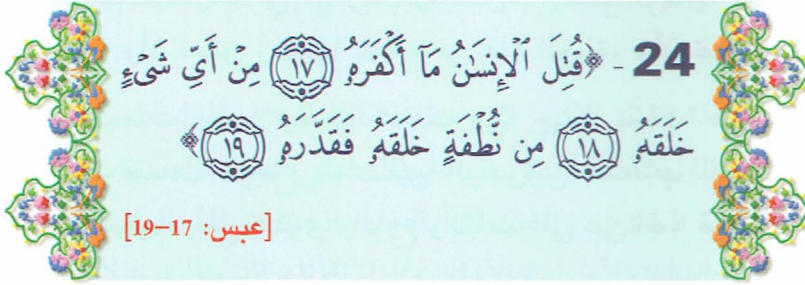 24 - ﴿قُتِلَ ٱلْإِنسَٰنُ مَآ أَكْفَرَهُۥ ١٧ مِنْ أَىِّ شَىْءٍ
خَلَقَهُۥ ١٨ مِن نُّطْفَةٍ خَلَقَهُۥ فَقَدَّرَهُۥ ١٩﴾
[عبس: 17–19]